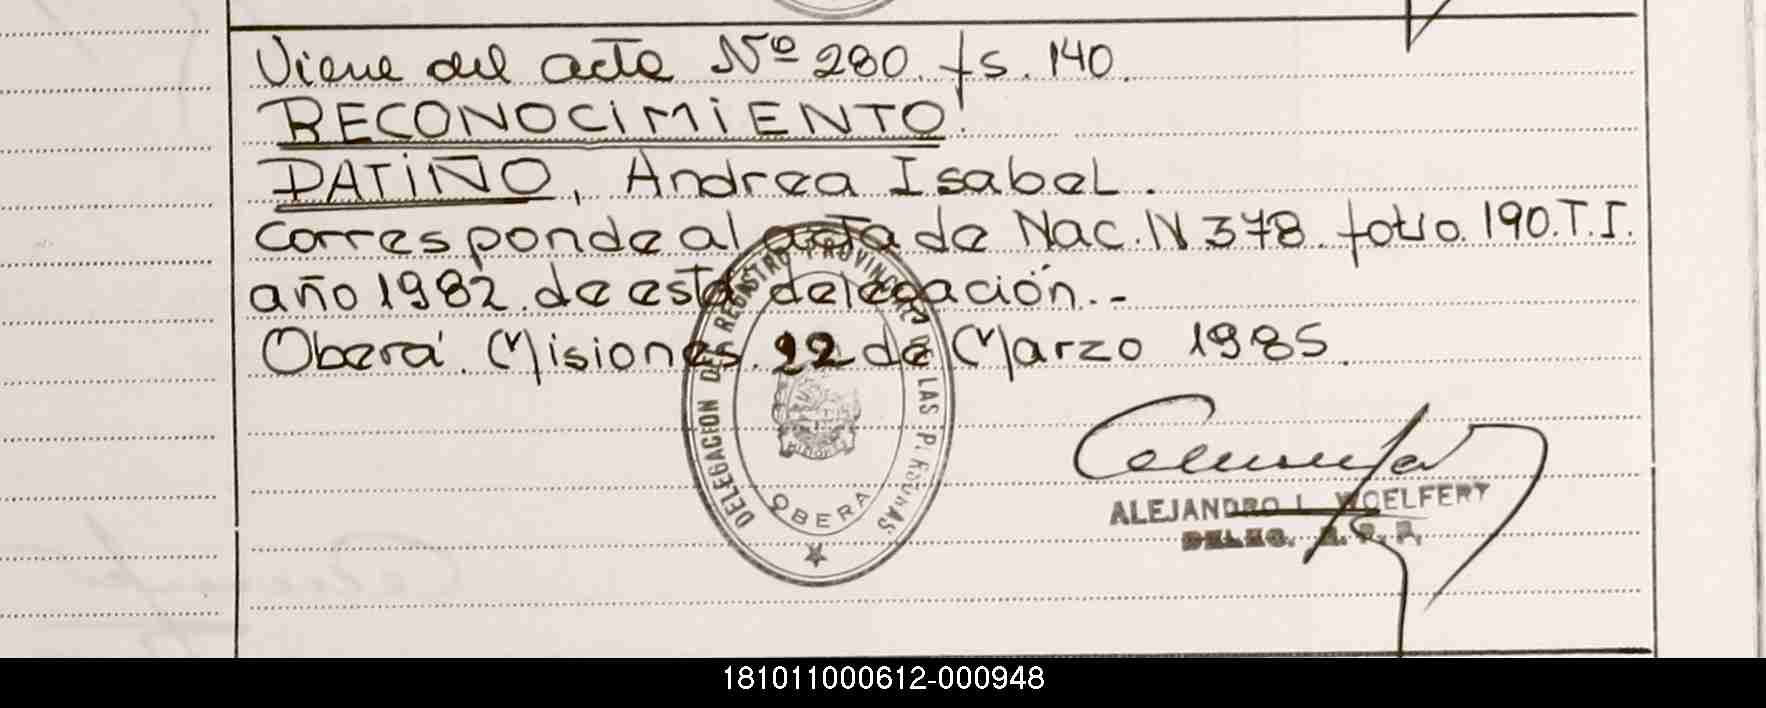 Viene del acta Nº 280. fs. 140.
RECONOCIMIENTO
PATIÑO, Andrea Isabel.
Corresponde al acta de Nac. N 378. folio. 190. T. I.
año 1982. de esta delegación.-
Oberá. Misiones. 22 de Marzo 1985.
DELEGACION DEL REGISTRO PROVINCIAL DE LAS PERSONAS
MISIONES
OBERA
ALEJANDRO L. WOELFERT
DELEG. R. P. P.
181011000612-000948